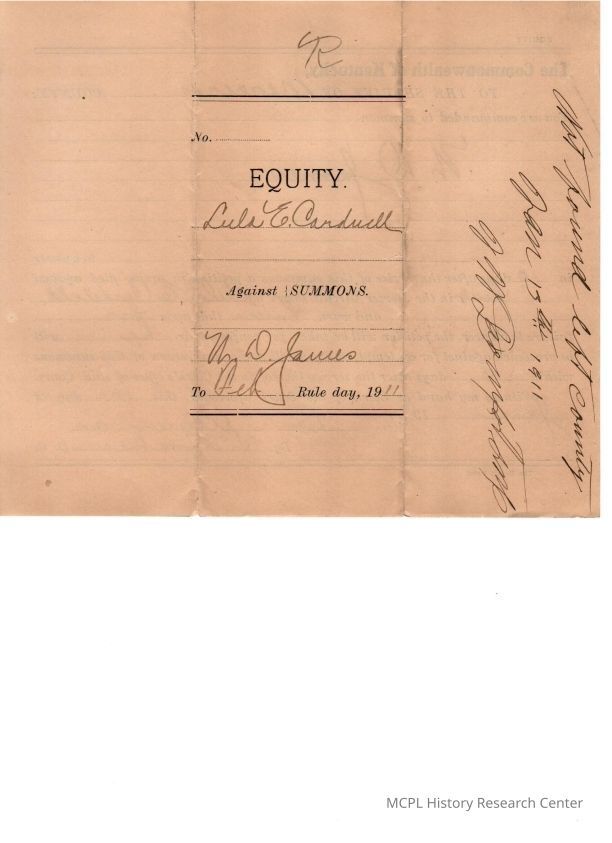 R
No.
EQUITY.
Lula E. Cardwell
Against SUMMONS.
W. D. James
To Feb Rule day, 1911
Not found left County
Jan 15th 1911
MCPL History Research Center